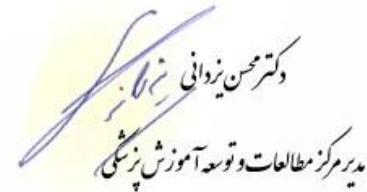 دکتر محسن یزدانی
مدیر مرکز مطالعات و توسعه آموزش پزشکی